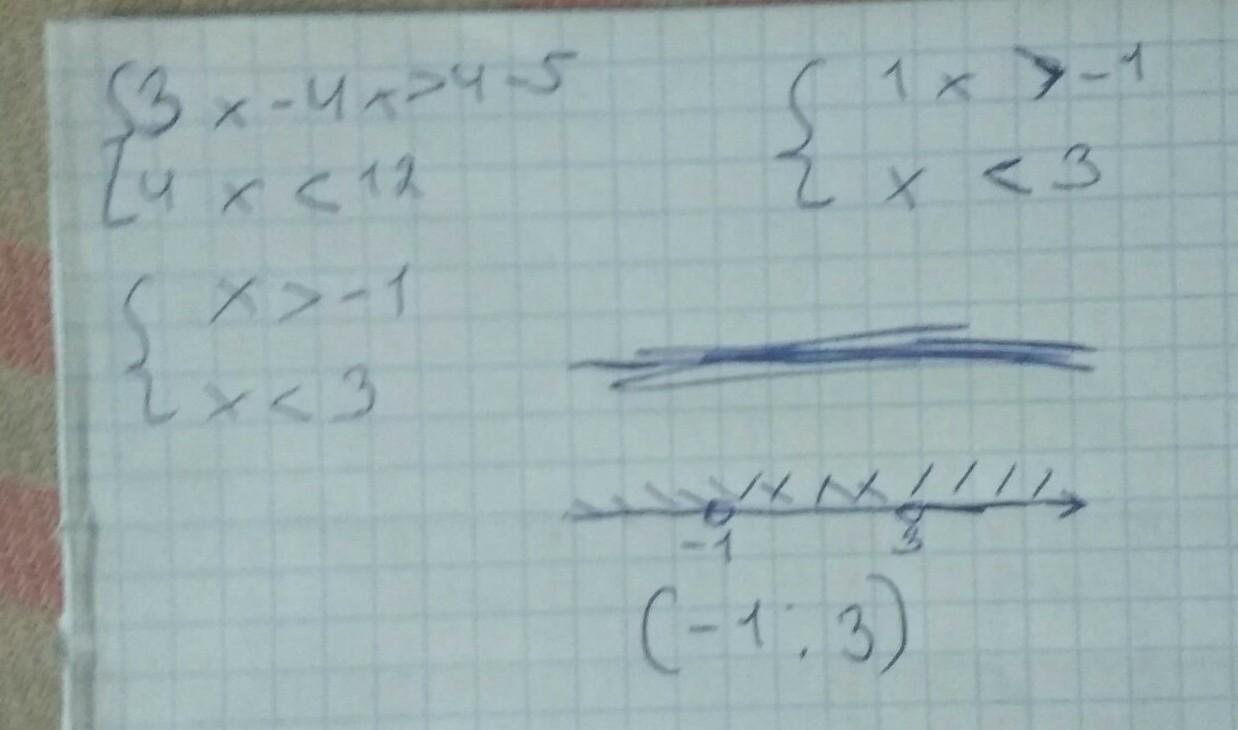 {3x-4x>4-5
{4x<12
{x>-1
{x<3
{1x>-1
{x<3
-1 3
(-1;3)